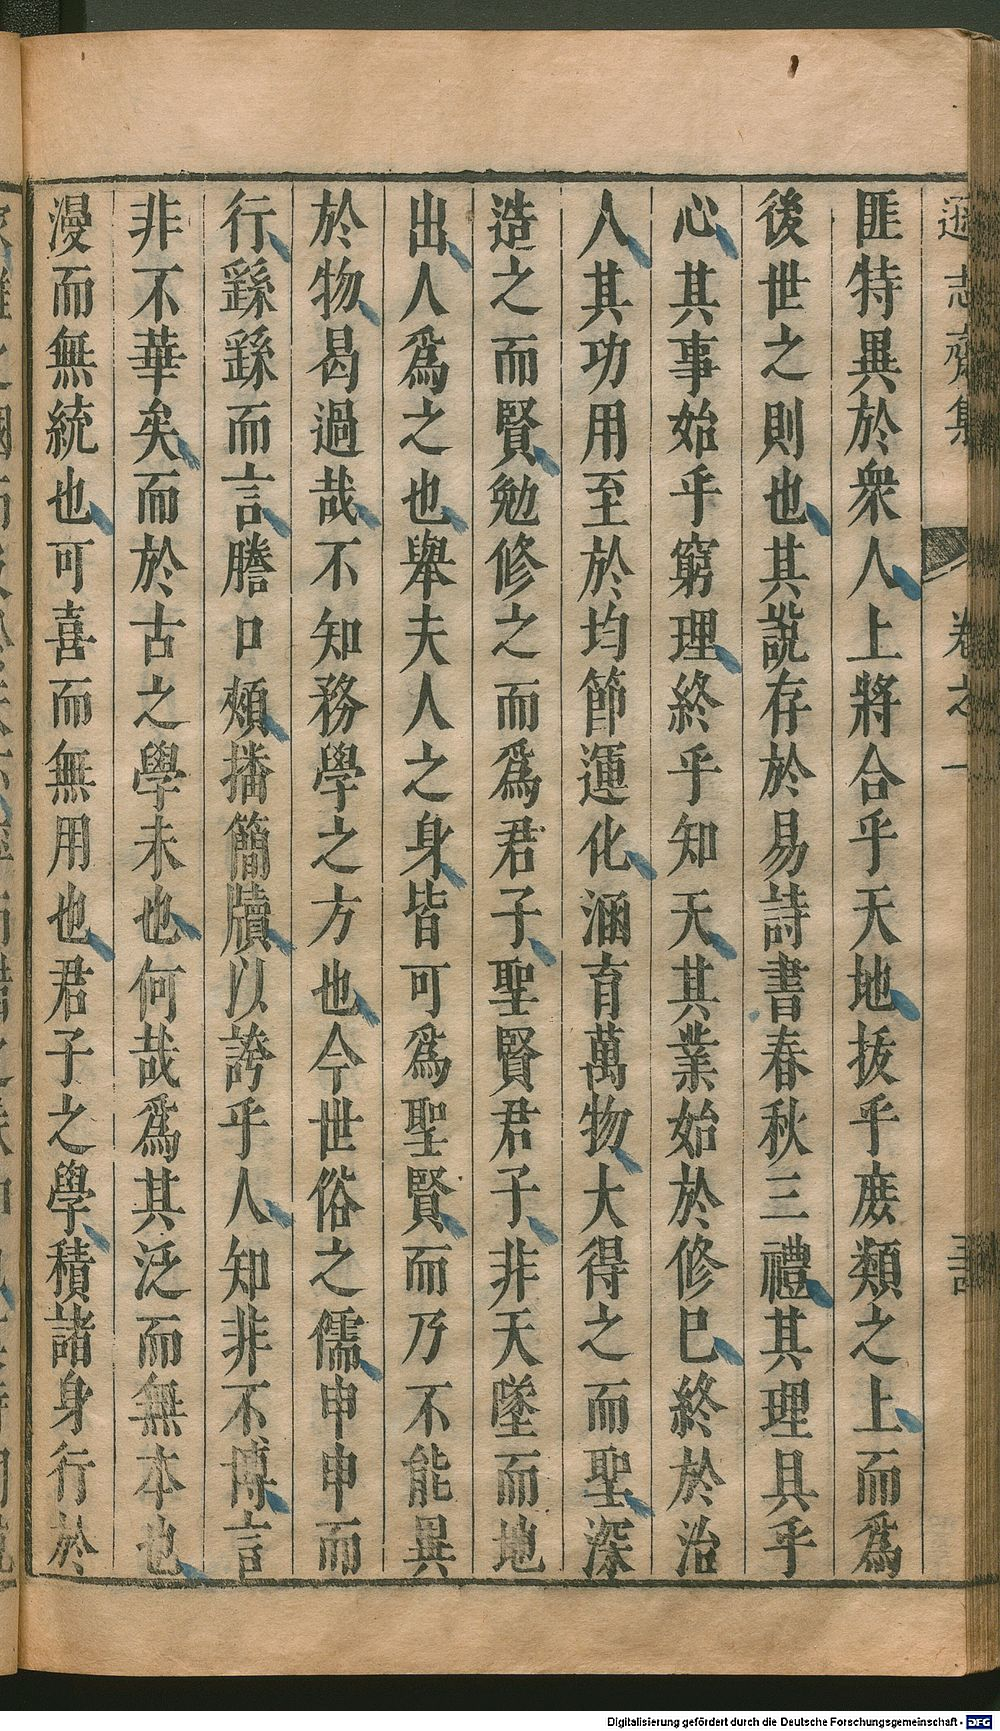 遜志齋集 卷之一
匪特異於衆人上將合乎天地拔乎庶類之上而爲
後世之則也其說存於易詩書春秋三禮其理具乎
心其事始乎窮理終乎知天其業始於修己終於治
人其功用至於均節運化涵育萬物大得之而聖深
造之而賢勉修之而爲君子聖賢君子非天墜而地
出人爲之也舉夫人之身皆可爲聖賢而乃不能異
於物曷過哉不知務學之方也今世俗之儒申申而
行繇繇而言謄口頰播簡牘以誇乎人知非不博言
非不華矣而於古之學未也何哉爲其泛而無本也
漫而無統也可喜而無用也君子之學積諸身行於
Digitalisierung gefördert durch die Deutsche Forschungsgemeinschaft - DFG